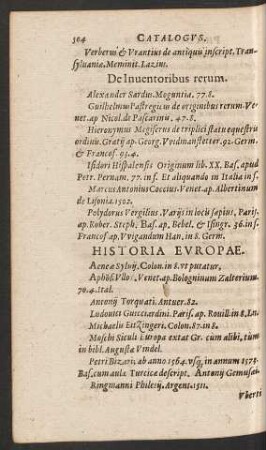 504 CATALOGVS.
Verberus & Vrantius de antiquis inscript. Tran-
syluania. Meminit Lazius.
De Inuentoribus rerum.
Alexander Sardus. Moguntiæ. 77.8.
Guilhelmus Pastregius de originibus rerum. Ve-
net. ap Nicol. de Pascarinu. 47.8.
Hieronymus Magiserus de triplici statu equestri
ordinu. Gratij ap. Georg. VVidmanstetter. 92. Germ.
& Francof. 93.4.
Isidori Hispalensis Originum lib. XX. Bas. apud
Petr. Pernam. 77. in f. Et aliquando in Italia in f.
Marcus Antonius Coccius. Venet. ap. Albertinum
de Lisonia. 1502.
Polydorus Vergilius. Varijs in locis sæpius, Paris.
ap. Rober. Steph. Bas. ap. Bebel. & Isingr. 36. in f.
Francof. ap. VVigandum Han. in 8. Germ.
HISTORIA EVROPAE.
Aeneæ Sylvij. Colon. in 8. vt putatur.
Venet. ap. Bologninum Zalterium.
70.4. Ital.
Antonij Torquati. Antuer. 82.
Ludouici Guicciardini. Paris. ap. Rouill. in 8. Lu.
Michaelis EitZingeri. Colon. 87. in 8.
Moschi Siculi Europa extat Gr. cum alibi, tum
in bibl. Augustæ Vindel.
Petri Bizari. ab anno 1564. vsq. in annum 1573.
Bas. cum aula Turcicæ descript. Antonij Geufræi.
Ringmanni Philesij. Argent. 1511.
Vberti